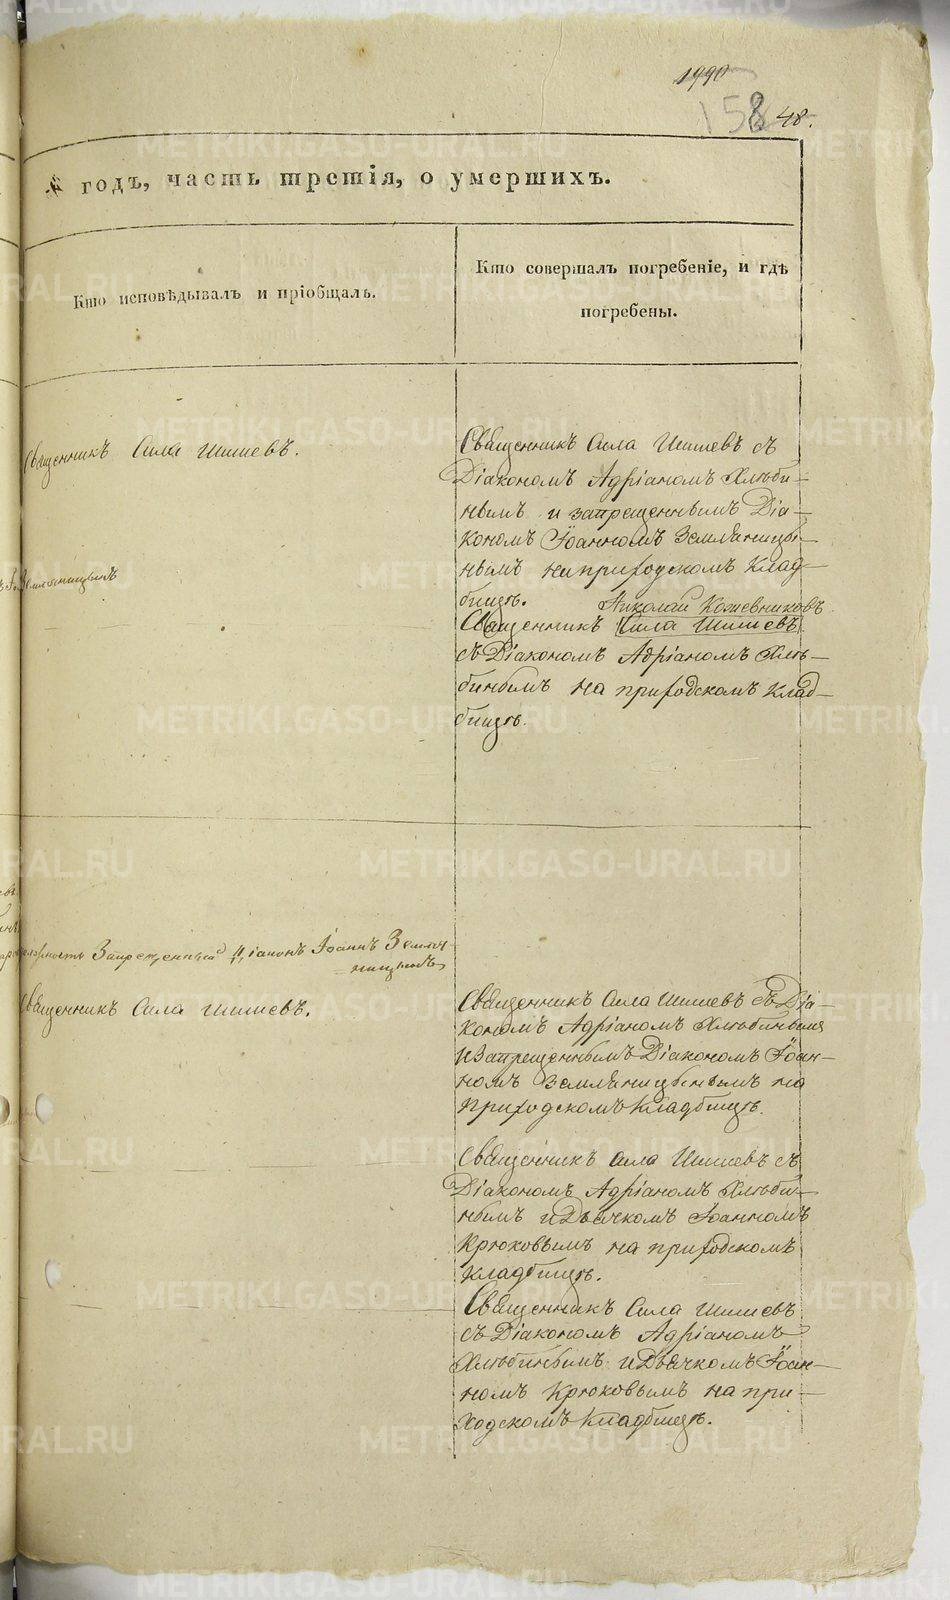 1990
158 48.
годъ, часть третія, о умершихъ.
Кто исповѣдывалъ и пріобщалъ.
Кто совершалъ погребеніе, и гдѣ
погребены.
Священникъ Сила Шишевъ.
Священникъ Сила Шишевъ съ
Діакономъ Адріаномъ Хлѣби-
нымъ и запрещеннымъ Діа-
кономъ Іоанномъ Земляницы-
нымъ на приходскомъ клад-
бищѣ. Николай Кожевниковъ
Священникъ Сила Шишевъ
съ Діакономъ Адріаномъ Хлѣ-
бинымъ на приходскомъ клад-
бищѣ.
Запрещенный Діаконъ Іоаннъ Земля-
ницынъ
Священникъ Сила Шишевъ.
Священникъ Сила Шишевъ съ Діа-
кономъ Адріаномъ Хлѣбинымъ
и Запрещеннымъ Діакономъ Іоан-
номъ Земляницынымъ на
Приходскомъ кладбищѣ.
Священникъ Сила Шишевъ съ
Діакономъ Адріаномъ Хлѣби-
нымъ и Дьячкомъ Іоанномъ
Крюковымъ на приходскомъ
кладбищѣ.
Священникъ Сила Шишевъ
съ Діакономъ Адріаномъ
Хлѣбинымъ и Дьячкомъ Іоан-
номъ Крюковымъ на при-
ходскомъ кладбищѣ.
METRIKI.GASO-URAL.RU